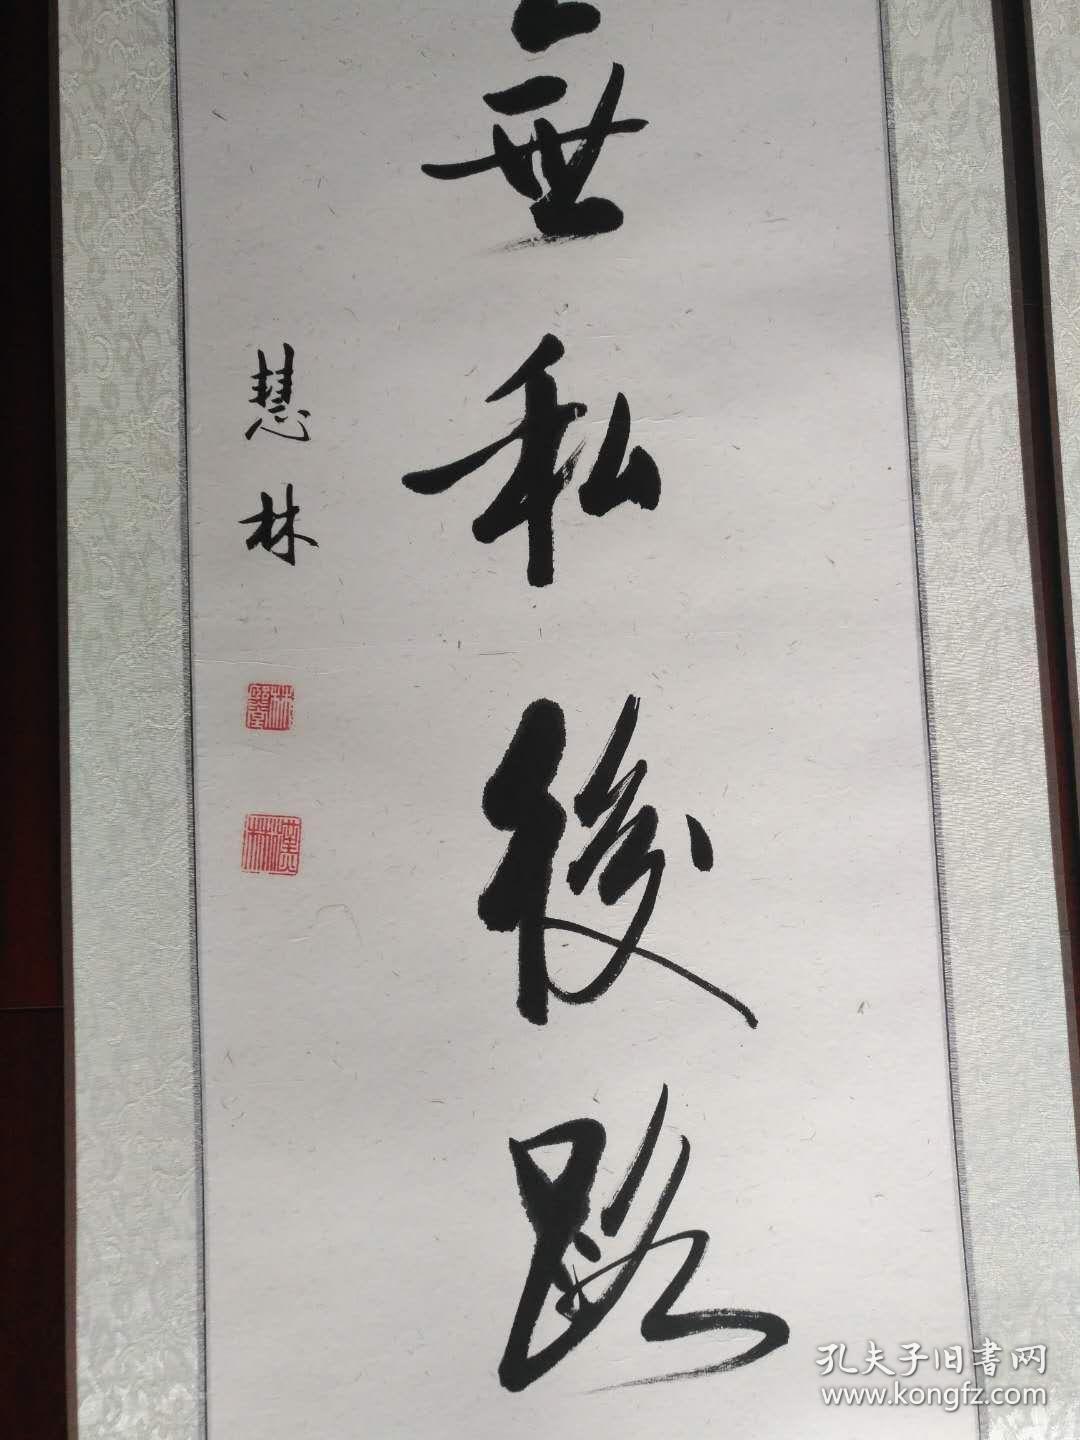 無私後路
慧林
孔夫子旧書网
www.kongfz.com